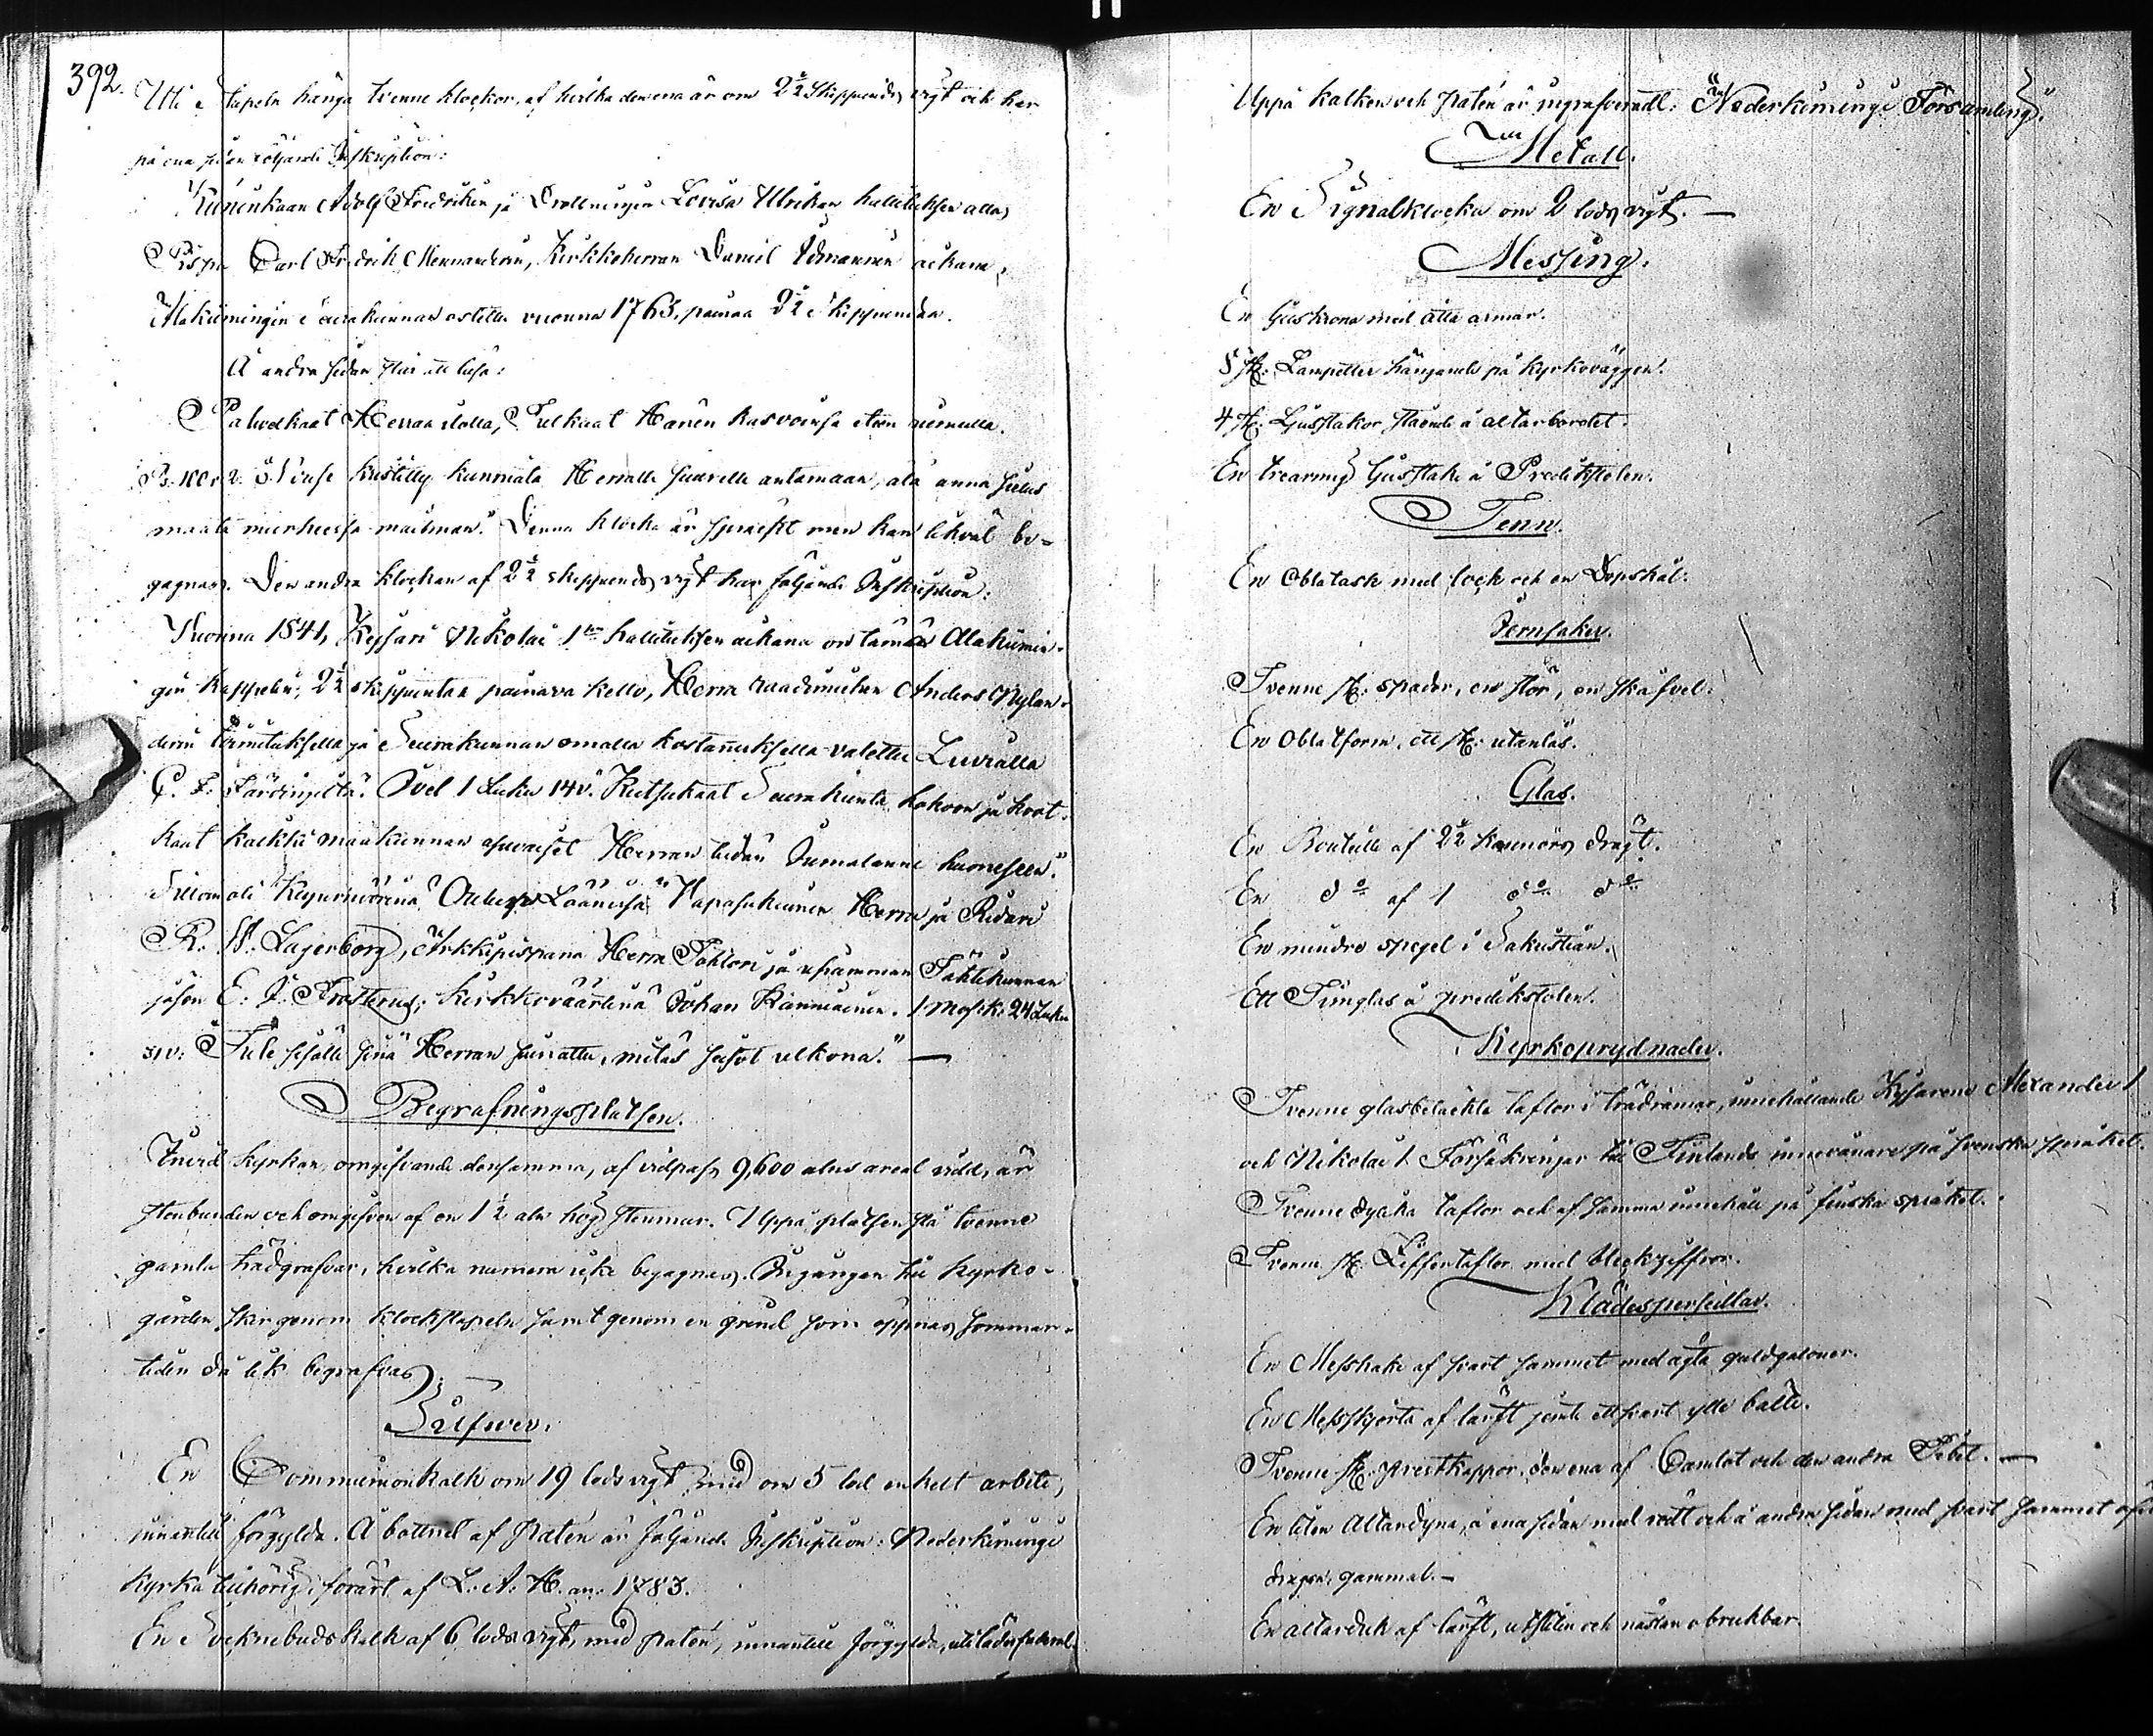 392.
Uti Stapeln hänga tvenne klockor, af hvilka den ena är om 2½ Skeppunds vigt och har
på ena sidan följande Inskription:
Kuninkaan Adolf Fredriken ja Drottningin Lovisa Ulrikan hallituksen alla,
Pispa Carl Fredrik Mennanderin, Kirkkoherran Daniel aikana,
Alakiimingin Seurakunnan ostettu vuonna 1763, painaa 2½ Skippundaa.
Å andra sidan står att läsa:
Palvelkaat Herraa ilolla, Tulkaat Hänen kasvoinsa eteen riemulla.
Ps. 100 v 2.
maata Denna klocka är spräckt men kan likväl be-
gagnas. Den andra klockan af 2½ skeppunds vigt har följande Inskription:
Vuonna 1841, Keisari Nikolai 1sen hallituksen aikana on tämän Alakiimin-
gin kappelin, 2½ skippuntaa painava kello, Herra raadimiehen Anders Nylan-
derin toimituksella ja Seurakunnan omalla kostannuksella valettu Luvialla
C. F. Joel 1 Luku 14 v. Kutsukaat Seurakunta kokoon ja
kaat kaikki maakunnan asuvaiset Herran teidän Jumalanne huoneseen."
Silloin oli Kuvernöörinä Oulun Läänissä Vapasukuinen Herra ja Ridari
R. W. Lagerborg, Arkkipispana Herra Tohtori ja Tähtikunnan
jäsen E. J. Frosterus; Kirkkoväärtinä Johan 1 Mosek: 24 Luku
31 v: Tule sisälle sinä Herran siunattu, miksi seisot ulkona." —
Begrafningsplatsen.
Invid kyrkan, omgifvande densamma, af vidpass 9,600 alns areal vidd, är
stenbunden och omgifven af en 1½ aln hög stenmur. Uppå platsen stå tvenne
gamla trädgrafvar, hvilka numera icke begagnas. Ingången till kyrko-
gården sker genom klockstapeln samt genom en grind som öppnas sommar-
tiden då lik begrafvas.
Silfwer.
En Communionkalk om 19 lods vigt med om 5 lod enkelt arbete,
innantill förgylda. Å bottnet af paten är följande Inskription: Nederkiminge
kyrka tillhörig, förärt af L. A. H. an: 1783.
En Sockenbudskalk af 6 lods vigt, med paten, innantill förgylda, uti läderfutral.
Uppå kalken och paten är ingrafveradt: "Nederkiminge Församling."
Metall.
En Signalklocka om 2 lods vigt. —
Messing.
En ljuskrona med åtta armar.
8 st: Lampetter hängande på kyrkoväggen.
4 st: Ljusstakar stående å altarbordet.
En trearmig ljusstake å Predikstolen.
Tenn.
En Oblatask med lock och en Dopskål.
Jernsaker.
Tvenne st: spador, en stör, en skåfvel.
En Oblatform, ett st: utanlås.
Glas.
En Boutelle af 2½ kannors drägt.
En do af 1 do do
En mindre spegel i Sakristian.
Ett Timglas å predikstolen.
Kyrkoprydnader.
Tvenne glasbetäckta taflor i trädramar, innehållande Kejsarens Alexander 1
och Nikolai 1 Försäkringar till Finlands innevånare på svenska språket.
Tvenne dylika taflor och af samma innehåll på finska språket.
Tvenne st. Ziffertaflor med bleckziffror.
Klädespersedlar.
En Messhake af svart sammet med äkta guldgaloner.
En Messskjorta af lärft jemte ett svart ylle bälte.
Tvenne st: prestkappor, den ena af Camlot och den andra —
En liten Altardyna, å ena sidan med rödt och å andra sidan med svart sammet öfver
dragen, gammal. —
En altarduk af lärft, utsliten och nästan obrukbar.